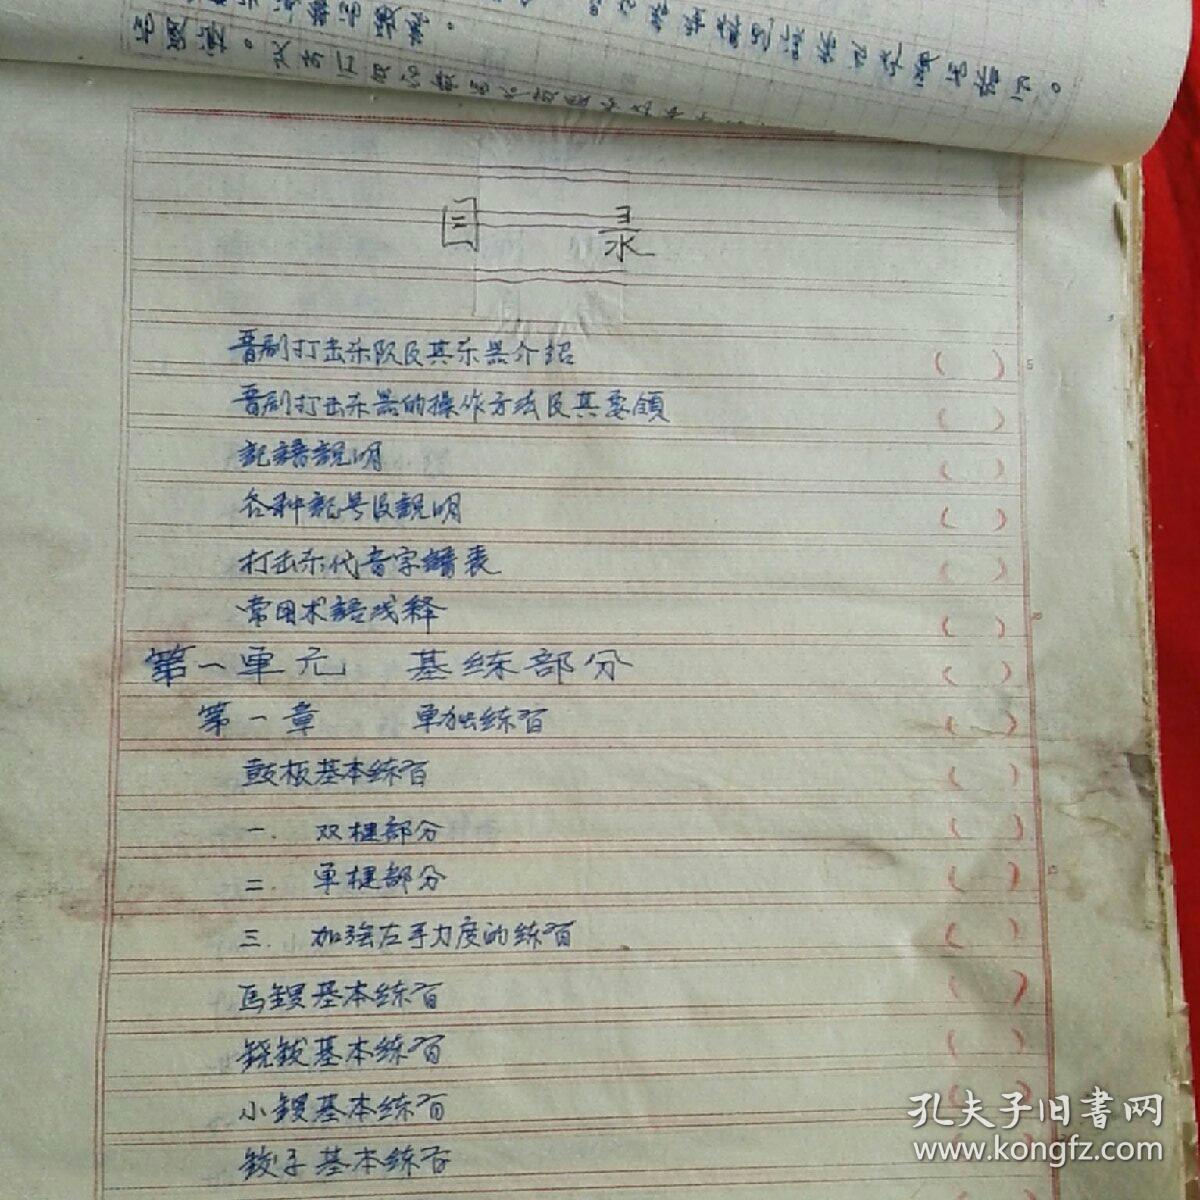 目 录
晋剧打击乐队及其乐器介绍 ( )
晋剧打击乐器的操作方法及其要領 ( )
記譜説明 ( )
各种記号及説明 ( )
打击乐代音字譜表 ( )
常用术語浅释 ( )
第一單元 基练部分 ( )
第一章 单独练习 ( )
鼓板基本练习 ( )
一. 双楗部分 ( )
二. 单楗部分 ( )
三. 加强左手力度的练习 ( )
马鑼基本练习 ( )
鐃鈸基本练习 ( )
小鑼基本练习 ( )
鉸子基本练习
孔夫子旧書网
www.kongfz.com